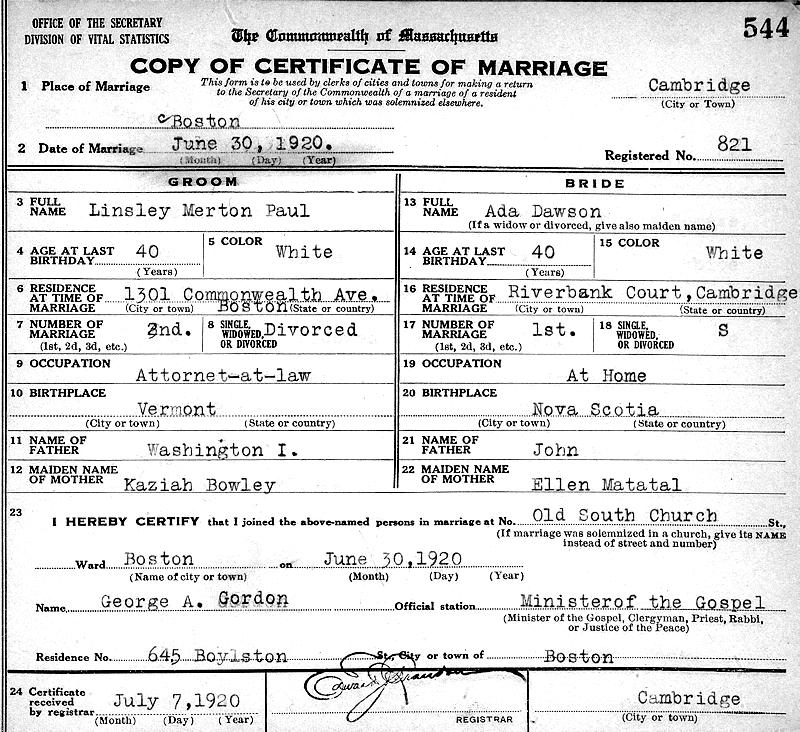 OFFICE OF THE SECRETARY
DIVISION OF VITAL STATISTICS
The Commonwealth of Massachusetts
544
COPY OF CERTIFICATE OF MARRIAGE
1 Place of Marriage
This form is to be used by clerks of cities and towns for making a return
to the Secretary of the Commonwealth of a marriage of a resident
of his city or town which was solemnized elsewhere.
Cambridge
(City or Town)
Boston
2 Date of Marriage June 30, 1920.
(Month) (Day) (Year)
Registered No. 821
GROOM
3 FULL NAME Linsley Merton Paul
4 AGE AT LAST BIRTHDAY 40 (Years)
5 COLOR White
6 RESIDENCE AT TIME OF MARRIAGE 1301 Commonwealth Ave.
(City or town) Boston (State or country)
7 NUMBER OF MARRIAGE 2nd. (1st, 2d, 3d, etc.)
8 SINGLE, WIDOWED, OR DIVORCED Divorced
9 OCCUPATION
Attornet-at-law
10 BIRTHPLACE
Vermont
(City or town) (State or country)
11 NAME OF FATHER Washington I.
12 MAIDEN NAME OF MOTHER Kaziah Bowley
BRIDE
13 FULL NAME Ada Dawson
(If a widow or divorced, give also maiden name)
14 AGE AT LAST BIRTHDAY 40 (Years)
15 COLOR White
16 RESIDENCE AT TIME OF MARRIAGE Riverbank Court, Cambridge
(City or town) (State or country)
17 NUMBER OF MARRIAGE 1st. (1st, 2d, 3d, etc.)
18 SINGLE, WIDOWED, OR DIVORCED S
19 OCCUPATION
At Home
20 BIRTHPLACE
Nova Scotia
(City or town) (State or country)
21 NAME OF FATHER John
22 MAIDEN NAME OF MOTHER Ellen Matatal
23
I HEREBY CERTIFY that I joined the above-named persons in marriage at No. Old South Church St.,
(If marriage was solemnized in a church, give its NAME
instead of street and number)
Ward Boston on June 30,1920
(Name of city or town) (Month) (Day) (Year)
Name George A. Gordon Official station Ministerof the Gospel
(Minister of the Gospel, Clergyman, Priest, Rabbi,
or Justice of the Peace)
Residence No. 645 Boylston St., City or town of Boston
24 Certificate received by registrar July 7,1920
(Month) (Day) (Year)
REGISTRAR
Cambridge
(City or town)